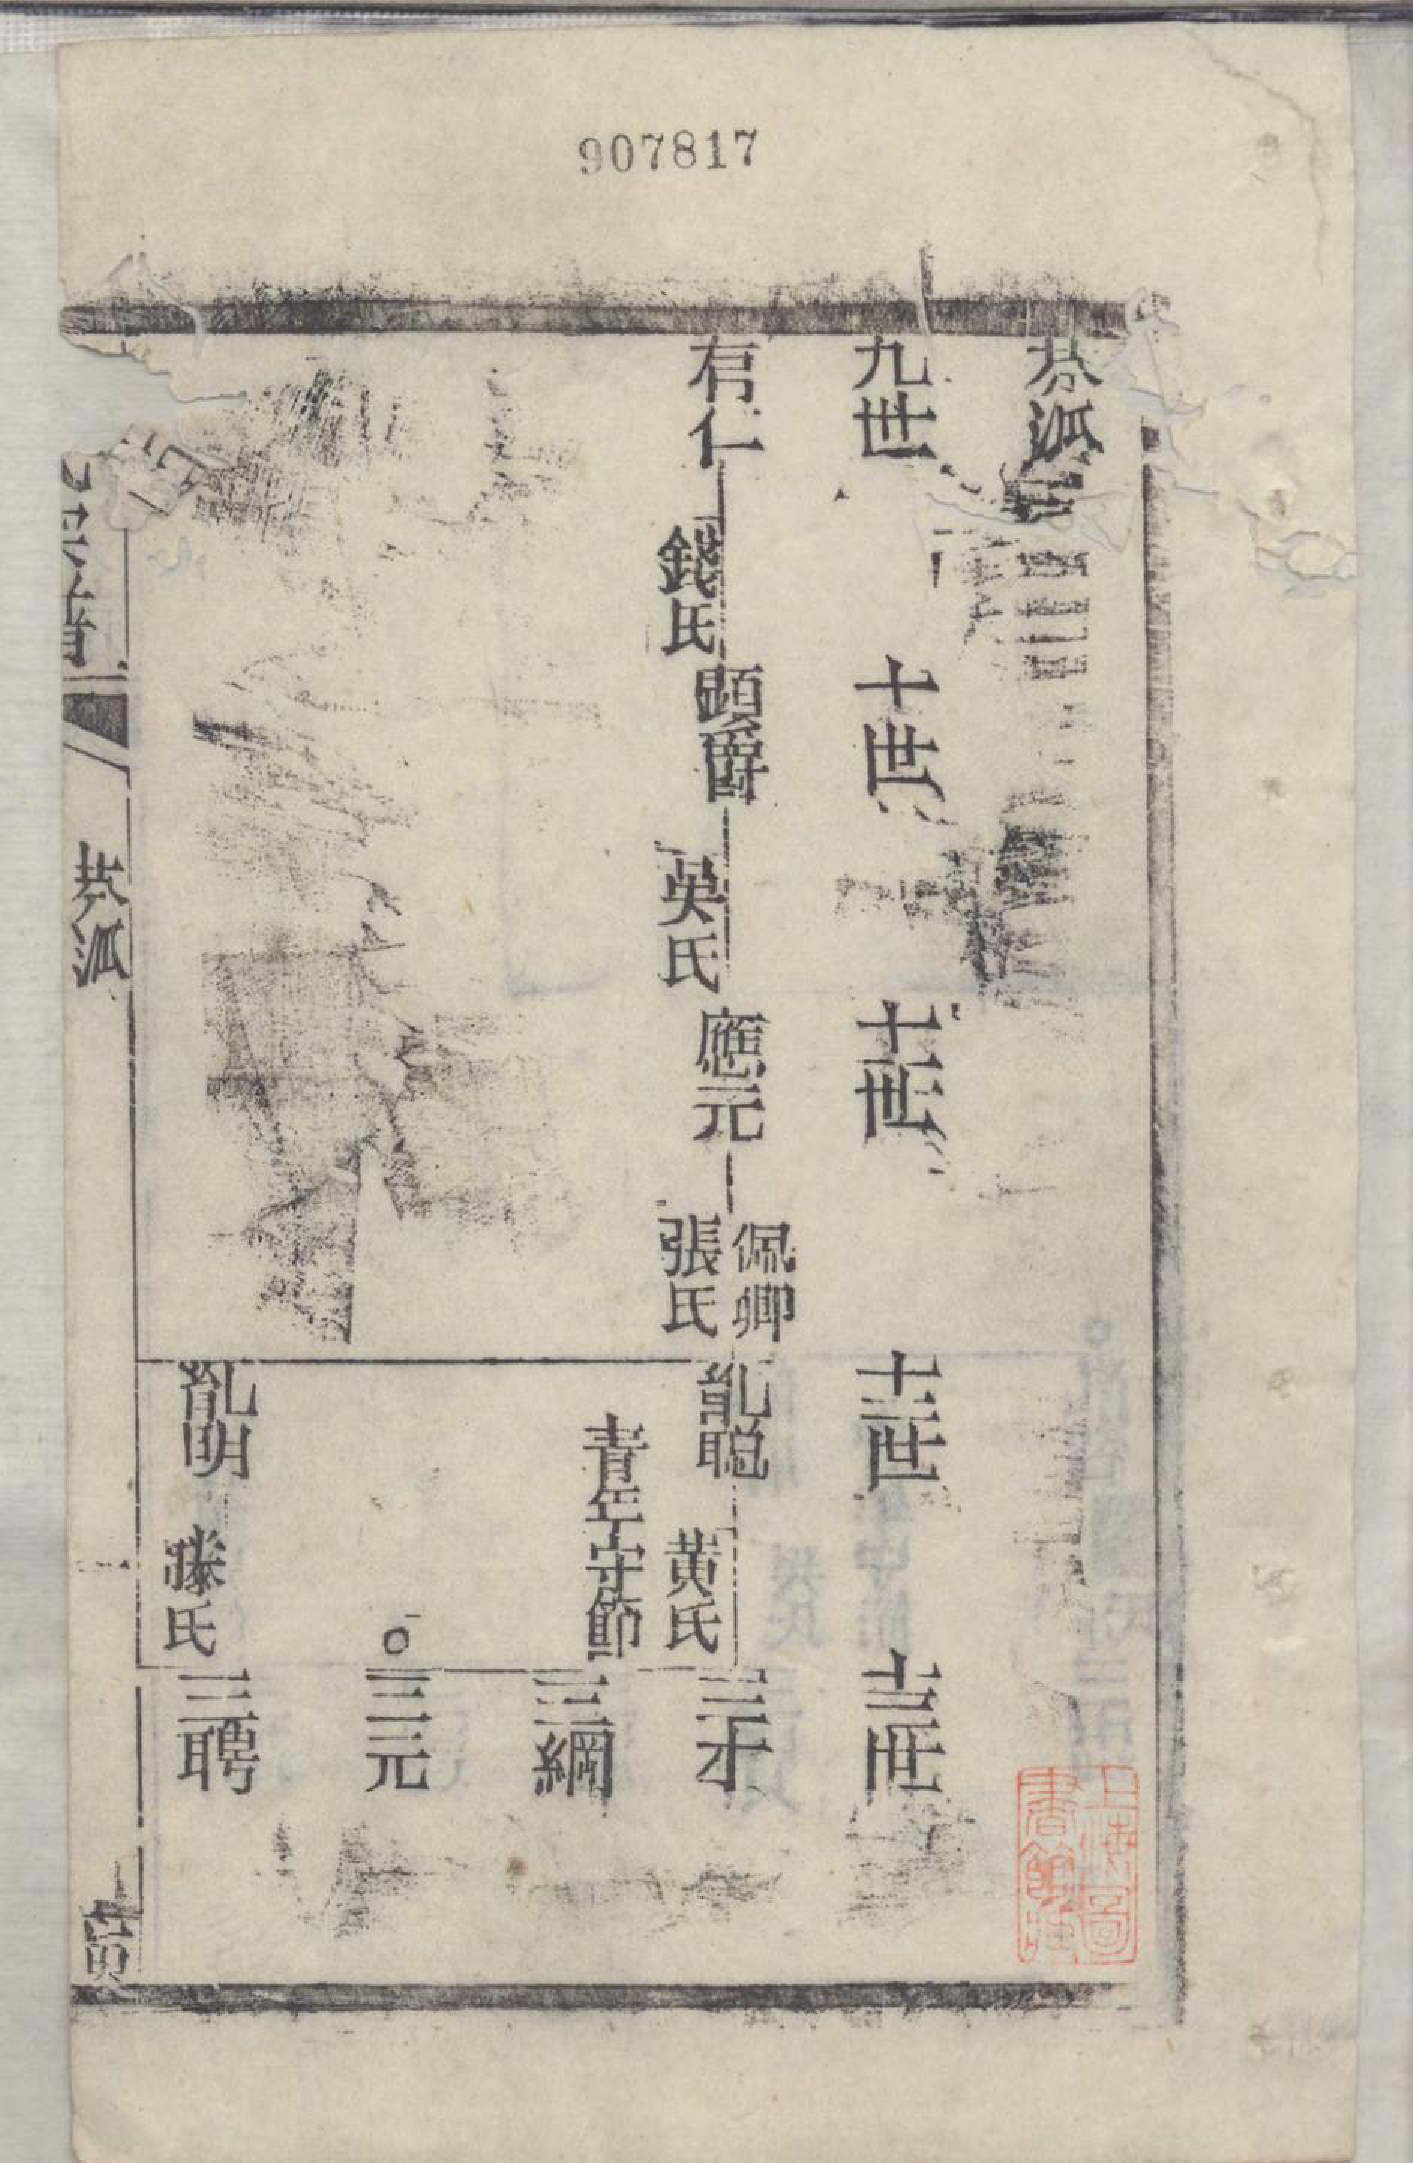 907817
恭派
九世
十世
十一世
十二世
十三世
有仁
錢氏
顕爵
吳氏
應元
佩卿
張氏
胤聰
黃氏
青年守節
三才
三綱
三元
胤明
滕氏
三聘
恭派
上海圖
書館藏